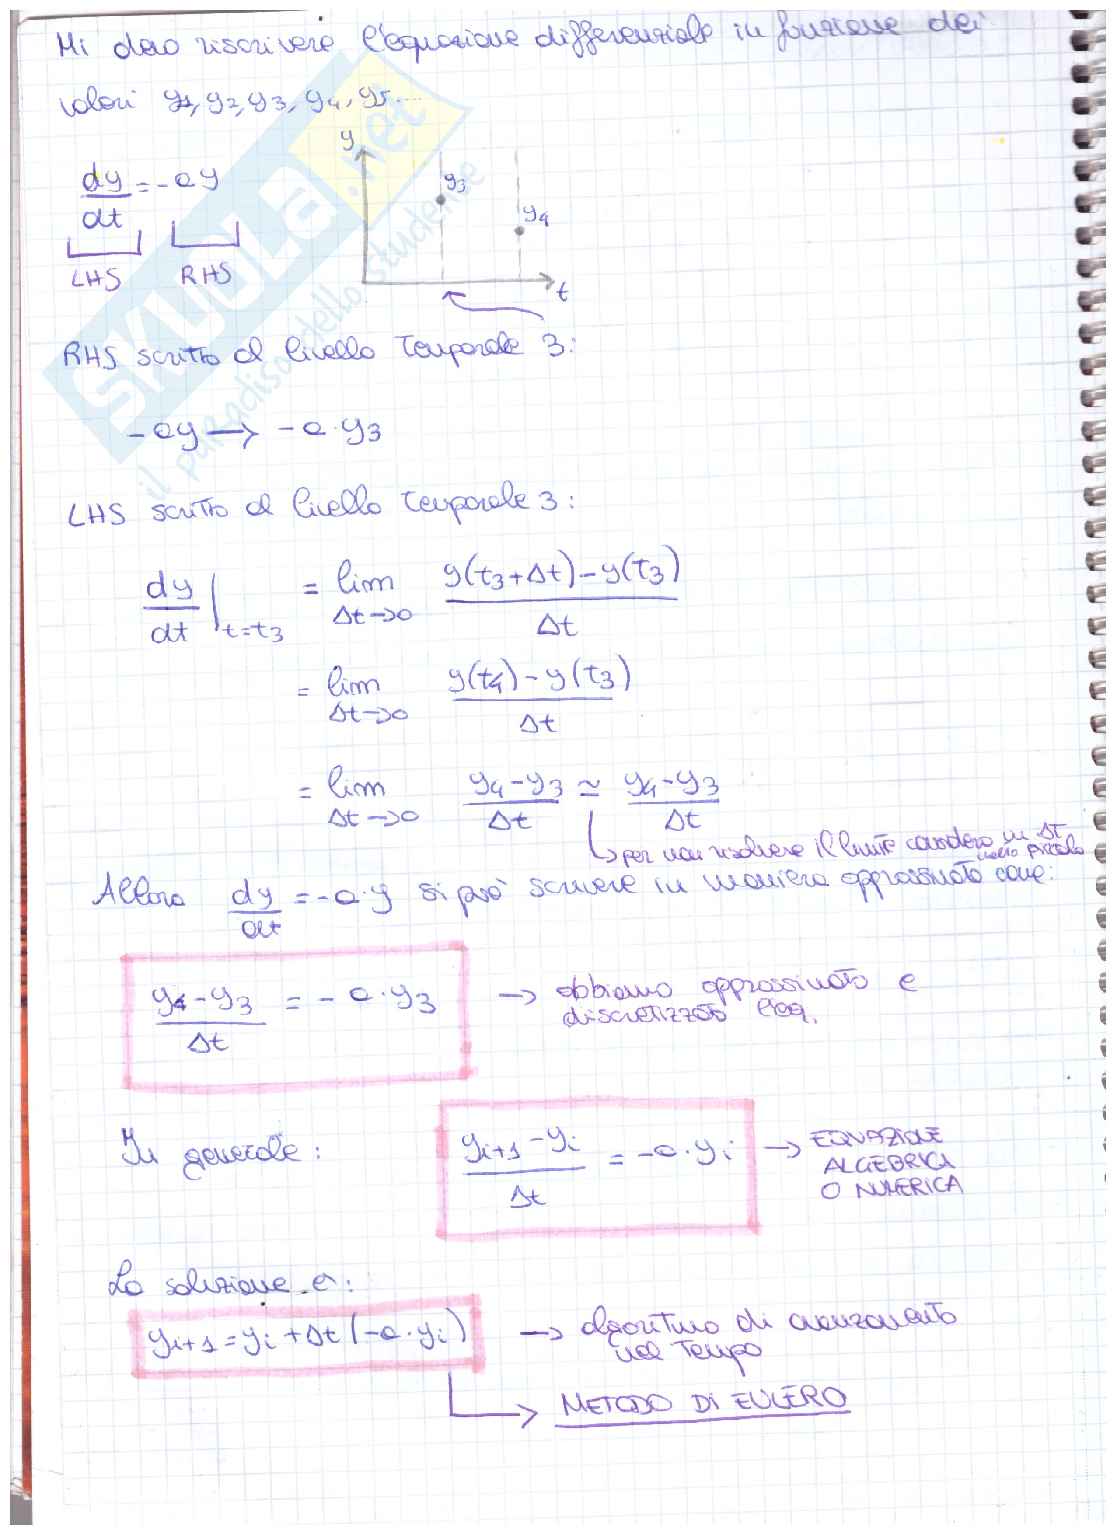 Mi devo riscrivere l'equazione differenziale in funzione dei
valori y1, y2, y3, y4, y5....
dy/dt = -ay
LHS RHS
y
y3
y4
t
RHS scritto al livello temporale 3:
-ay → -a·y3
LHS scritto al livello temporale 3:
dy/dt |t=t3 = lim Δt→0 (y(t3+Δt)-y(t3))/Δt
= lim Δt→0 (y(t4)-y(t3))/Δt
= lim Δt→0 (y4-y3)/Δt ≃ (y4-y3)/Δt
↳ per non risolvere il limite considero un Δt
molto piccolo
Allora dy/dt = -a·y si può scrivere in maniera approssimata come:
(y4-y3)/Δt = -a·y3 → abbiamo approssimato e
discretizzato l'eq.
In generale: (yi+1-yi)/Δt = -a·yi → EQUAZIONE
ALGEBRICA
O NUMERICA
La soluzione è:
yi+1 = yi + Δt(-a·yi) → algoritmo di avanzamento
nel tempo
→ METODO DI EULERO
SKUOLA.net
il paradiso dello studente